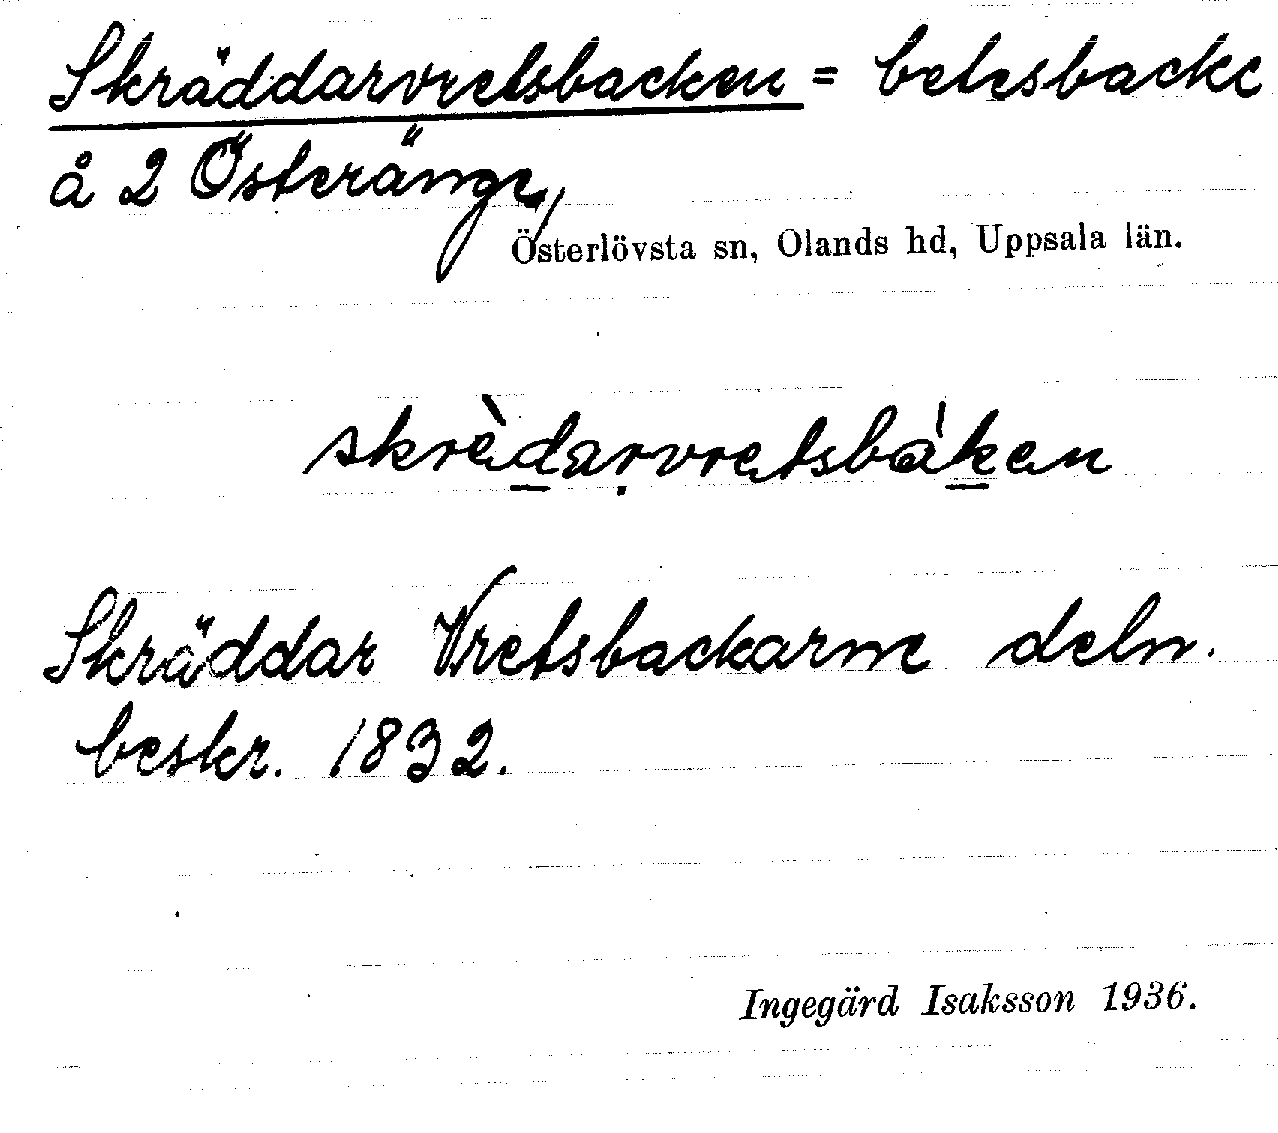 Skräddarvretsbacken = betesbacke
å 2 Österänge,
Österlövsta sn, Olands hd, Uppsala län.
skrèḏaṛvretsbáke̱n
Skräddar Vretsbackarne deln.
beskr. 1832.
Ingegärd Isaksson 1936.